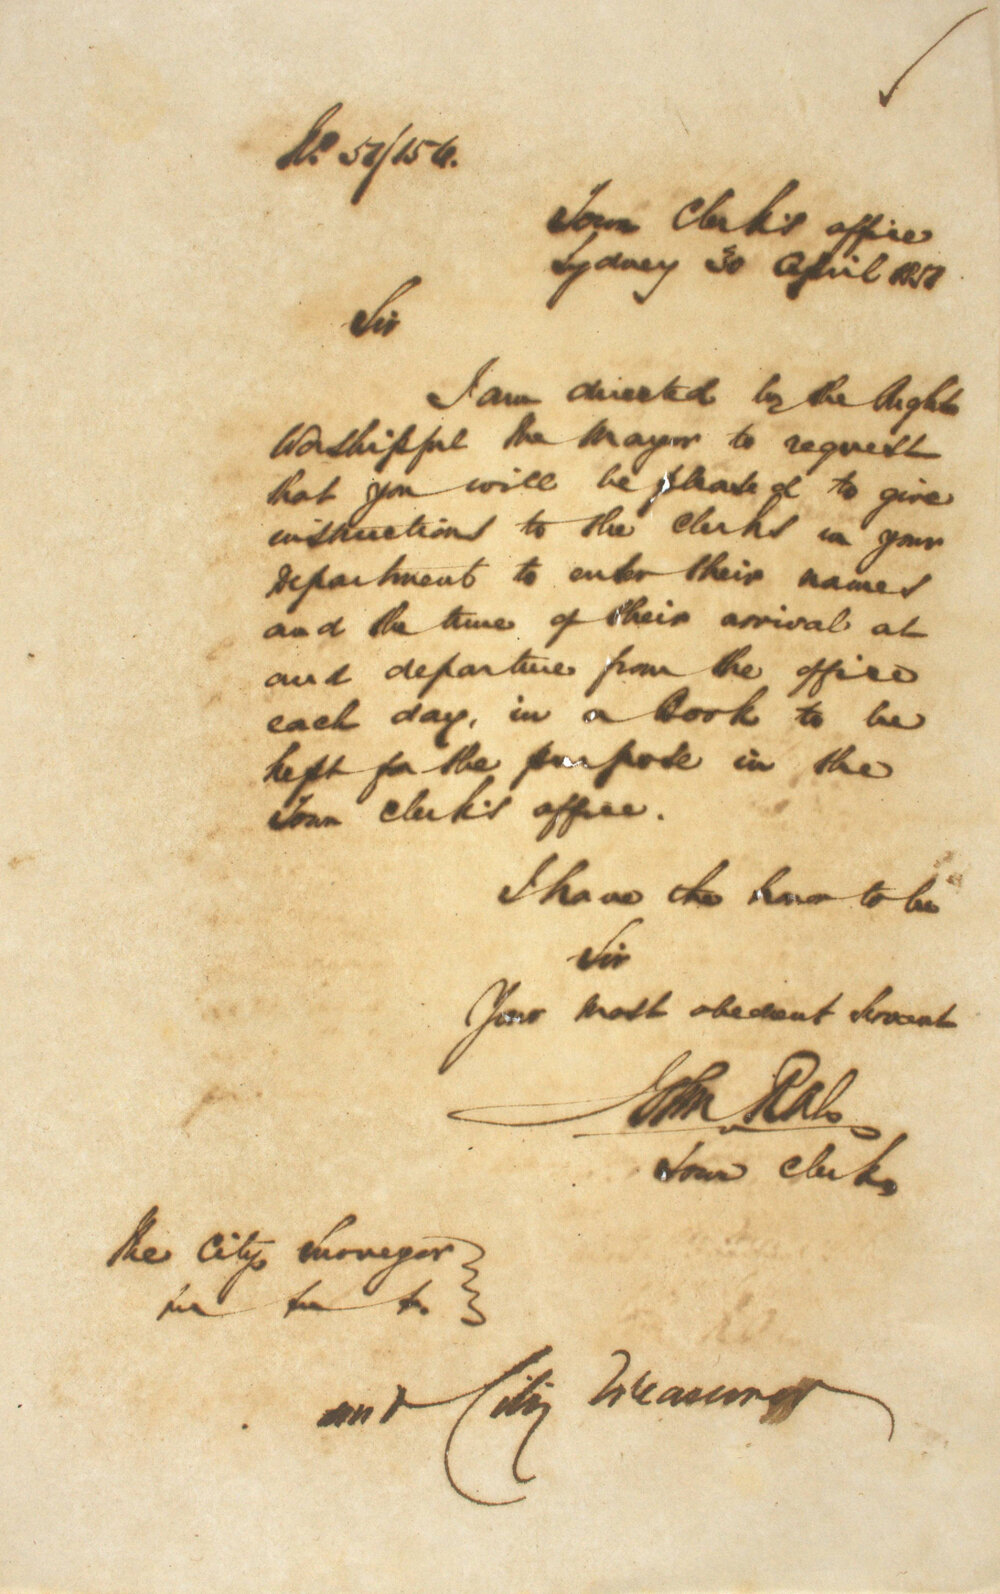 No. 57/156.
Town Clerk's office
Sydney 30 April 1857
Sir
I am directed by the Right
Worshipful the Mayor to request
that you will be pleased to give
instructions to the Clerks in your
Department to enter their names
and the time of their arrival at
and departure from the office
each day, in a Book to be
kept for the purpose in the
Town Clerk's office.
I have the honor to be
Sir
Your most obedient Servant
John Rae
Town Clerk
The City Surveyor
and City Treasurer